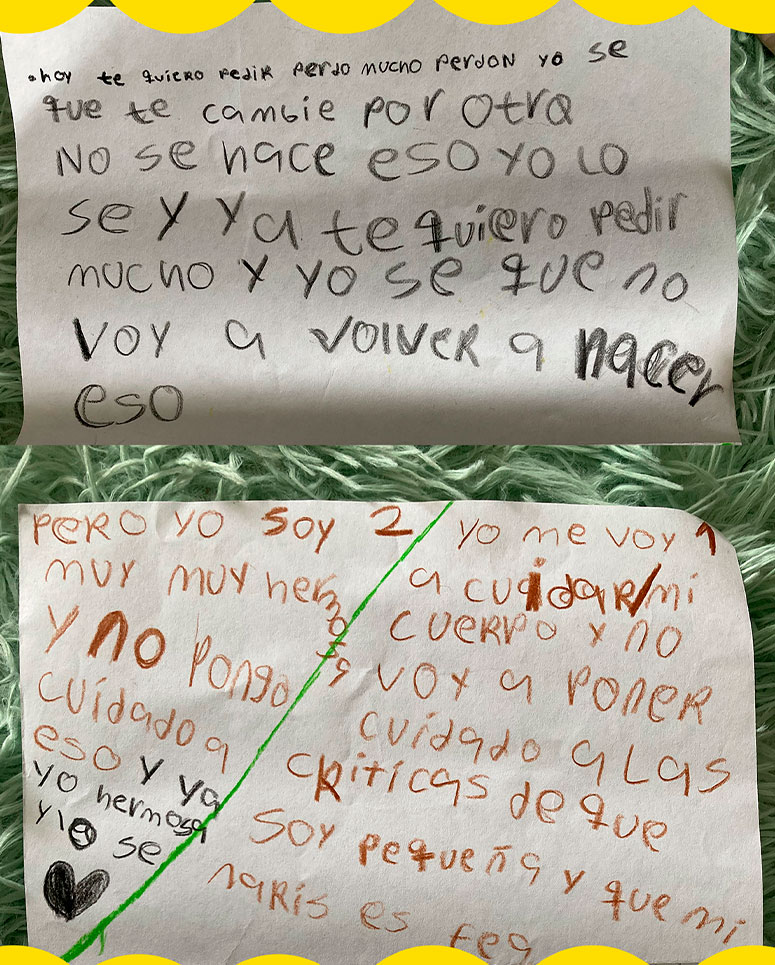 .hoy te quiero pedir perdo mucho perdon yo se
que te cambie por otra
No se hace eso yo lo
se y ya te quiero pedir
mucho y yo se que no
voy a volver a hacer
eso
yo me voy 1
a cuidar/mi
cuerpo y no
voy a poner
cuidado a las
criticas de que
soy pequeña y que mi
naris es fea
pero yo soy 2
muy muy hermosa
y no pongo
cuidado a
eso y ya
yo hermosa
y lo se